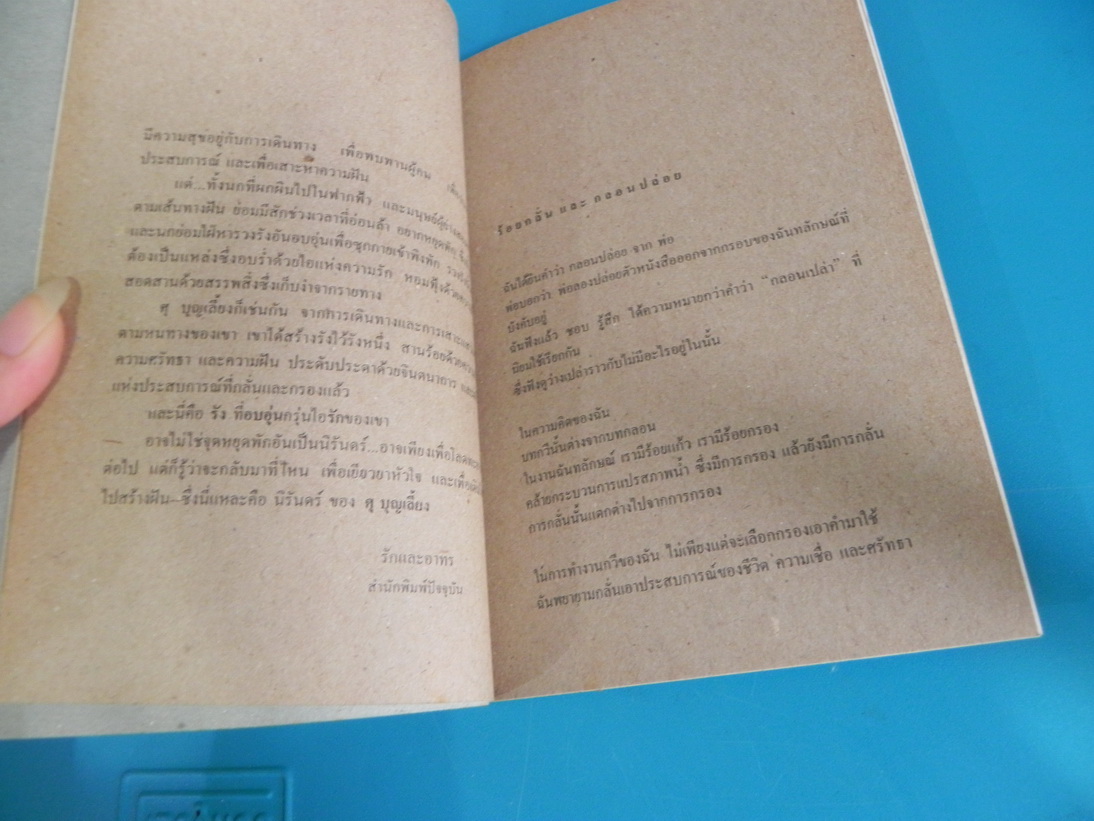 มีความสุขอยู่กับการเดินทาง เพื่อพบพานผู้คน
ประสบการณ์ และเพื่อเสาะหาความฝัน
แต่...ทั้งนกที่ผกผินไปในฟากฟ้า และมนุษย์ผู้
ตามเส้นทางฝัน ย่อมมีสักช่วงเวลาที่อ่อนล้า อยากหยุดพัก
และนกย่อมใฝ่หารวงรังอันอบอุ่นเพื่อซุกกายเข้าพิงพัก
ต้องเป็นแหล่งซึ่งอบร่ำด้วยไอแห่งความรัก หอมฟุ้งด้วย
สอดสานด้วยสรรพสิ่งซึ่งเก็บงำจากรายทาง
ศุ บุญเลี้ยงก็เช่นกัน จากการเดินทางและการเสาะแสวง
ตามหนทางของเขา เขาได้สร้างรังไว้รังหนึ่ง สานร้อยด้วย
ความศรัทธา และความฝัน ประดับประดาด้วยจินตนาการ
แห่งประสบการณ์ที่กลั่นและกรองแล้ว
และนี่คือ รัง ที่อบอุ่นกรุ่นไอรักของเขา
อาจไม่ใช่จุดหยุดพักอันเป็นนิรันดร์...อาจเพียงเพื่อ
ต่อไป แต่ก็รู้ว่าจะกลับมาที่ไหน เพื่อเยียวยาหัวใจ และเพื่อ
ไปสร้างฝัน—ซึ่งนี่แหละคือ นิรันดร์ ของ ศุ บุญเลี้ยง
รักและอาทร
สำนักพิมพ์ปัจจุบัน
ร้อยกลั่น และ กลอนปล่อย
ฉันได้ยินคำว่า กลอนปล่อย จาก พ่อ
พ่อบอกว่า พ่อลองปล่อยตัวหนังสือออกจากกรอบของฉันทลักษณ์ที่
บังคับอยู่
ฉันฟังแล้ว ชอบ รู้สึก ได้ความหมายกว่าคำว่า “กลอนเปล่า” ที่
นิยมใช้เรียกกัน
ซึ่งฟังดูว่างเปล่าราวกับไม่มีอะไรอยู่ในนั้น
ในความคิดของฉัน
บทกวีนั้นต่างจากบทกลอน
ในงานฉันทลักษณ์ เรามีร้อยแก้ว เรามีร้อยกรอง
คล้ายกระบวนการแปรสภาพน้ำ ซึ่งมีการกรอง แล้วยังมีการกลั่น
การกลั่นนั้นแตกต่างไปจากการกรอง
ในการทำงานกวีของฉัน ไม่เพียงแต่จะเลือกกรองเอาคำมาใช้
ฉันพยายามกลั่นเอาประสบการณ์ของชีวิต ความเชื่อ และศรัทธา